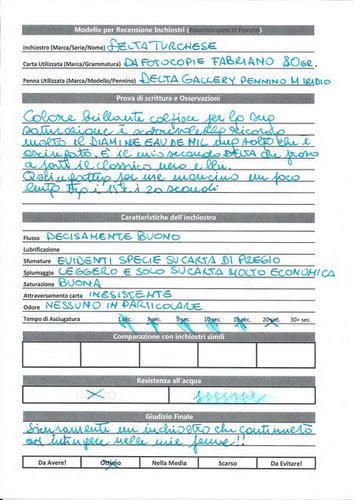 Modello per Recensione Inchiostri (Fountainpen.it Forum)
Inchiostro (Marca/Serie/Nome) DELTA TURCHESE
Carta Utilizzata (Marca/Grammatura) DA FOTOCOPIE FABRIANO 80GR.
Penna Utilizzata (Marca/Modello/Pennino) DELTA GALLERY PENNINO M IRIDIO
Prova di scrittura e Osservazioni
Colore brillante colpisce per la sua
saturazione e scorrevolezza ricorda
molto il DIAMINE EAU DE NIL una volta che è
asciugato. È il mio secondo DELTA che provo
a parte il classico nero e blu.
Asciugatura per me mancino un poco
lenta tra i 15 e i 20 secondi
Caratteristiche dell'inchiostro
Flusso DECISAMENTE BUONO
Lubrificazione
Sfumature EVIDENTI SPECIE SU CARTA DI PREGIO
Spiumaggio LEGGERO E SOLO SU CARTA MOLTO ECONOMICA
Saturazione BUONA
Attraversamento carta INESISTENTE
Odore NESSUNO IN PARTICOLARE
Tempo di Asciugatura 1 sec. 3 sec. 5 sec. 10 sec. 15 sec. 20 sec. 30+ sec.
Comparazione con inchiostri simili
Resistenza all'acqua
Giudizio Finale
Sicuramente un inchiostro che continuerò
ad intingere nelle mie penne!!
Da Avere! Ottimo Nella Media Scarso Da Evitare!